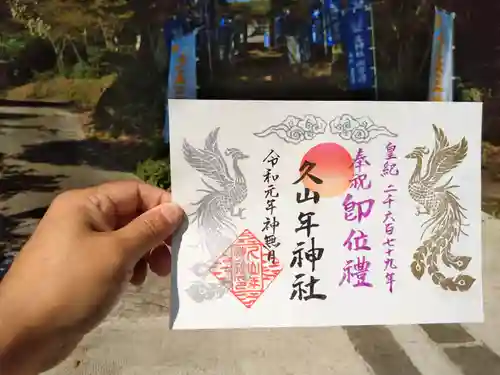 皇紀二千六百七十九年
奉祝 即位禮
久山年神社
令和元年神無月